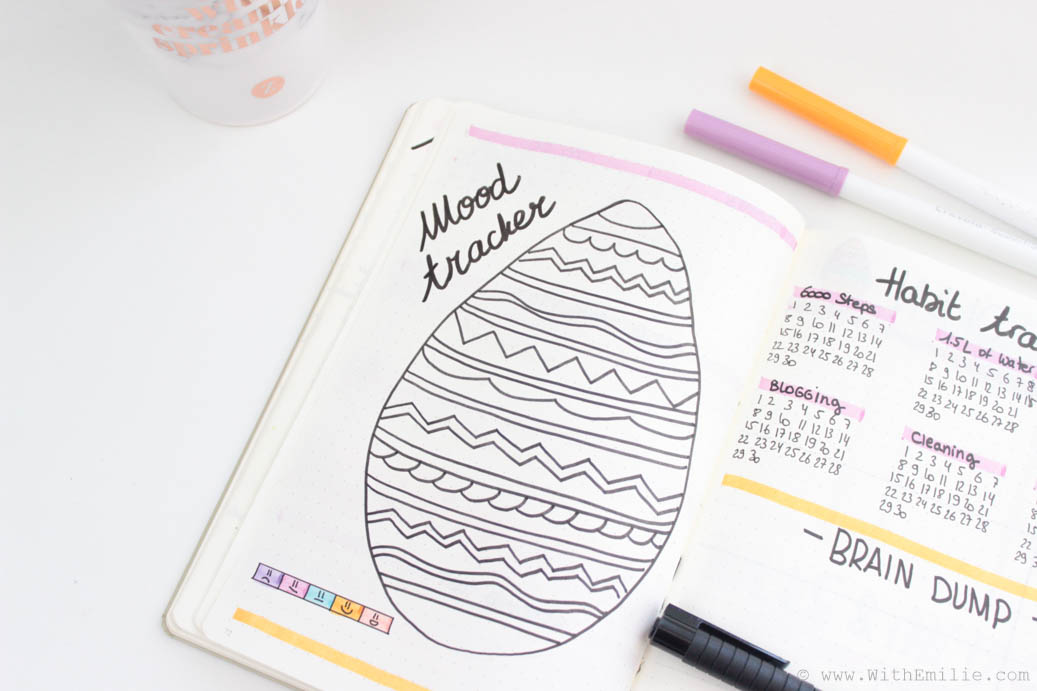 Mood
tracker
Habit
6000 Steps
1 2 3 4 5 6 7
8 9 10 11 12 13 14
15 16 17 18 19 20 21
22 23 24 25 26 27 28
29 30
1.5L of water
1 2 3 4 5 6 7
8 9 10 11 12 13 14
15 16 17 18 19 20 21
22 23 24 25 26 27 28
29 30
BLOGGING
1 2 3 4 5 6 7
8 9 10 11 12 13 14
15 16 17 18 19 20 21
22 23 24 25 26 27 28
29 30
Cleaning
1 2 3 4 5 6 7
8 9 10 11 12 13 14
15 16 17 18 19 20 21
22 23 24 25 26 27 28
29 30
- BRAIN DUMP -
© www.WithEmilie.com